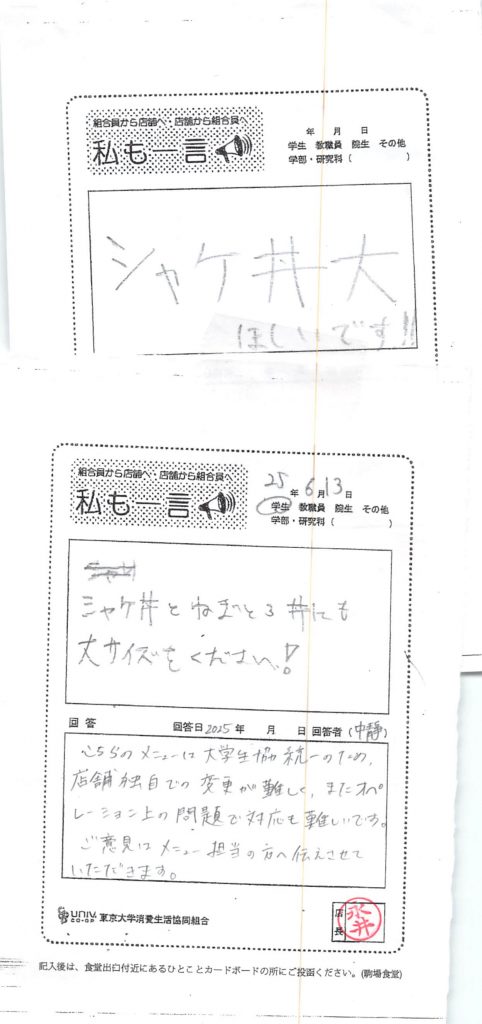 組合員から店舗へ・店舗から組合員へ
私も一言
年 月 日
学生 教職員 院生 その他
学部・研究科( )
シャケ丼大
ほしいです!!
組合員から店舗へ・店舗から組合員へ
私も一言
25年6月13日
学生 教職員 院生 その他
学部・研究科( )
シャケ丼とねぎとろ丼にも
大サイズをください!
回答 回答日2025年 月 日 回答者(中静)
こちらのメニューは大学生協統一のため、
店舗独自での変更が難しく、またオペ
レーション上の問題で対応も難しいです。
ご意見はメニュー担当の方へ伝えさせて
いただきます。
UNIV. CO-OP 東京大学消費生活協同組合
店長 永井
記入後は、食堂出口付近にあるひとことカードボードの所にご投函ください。(駒場食堂)